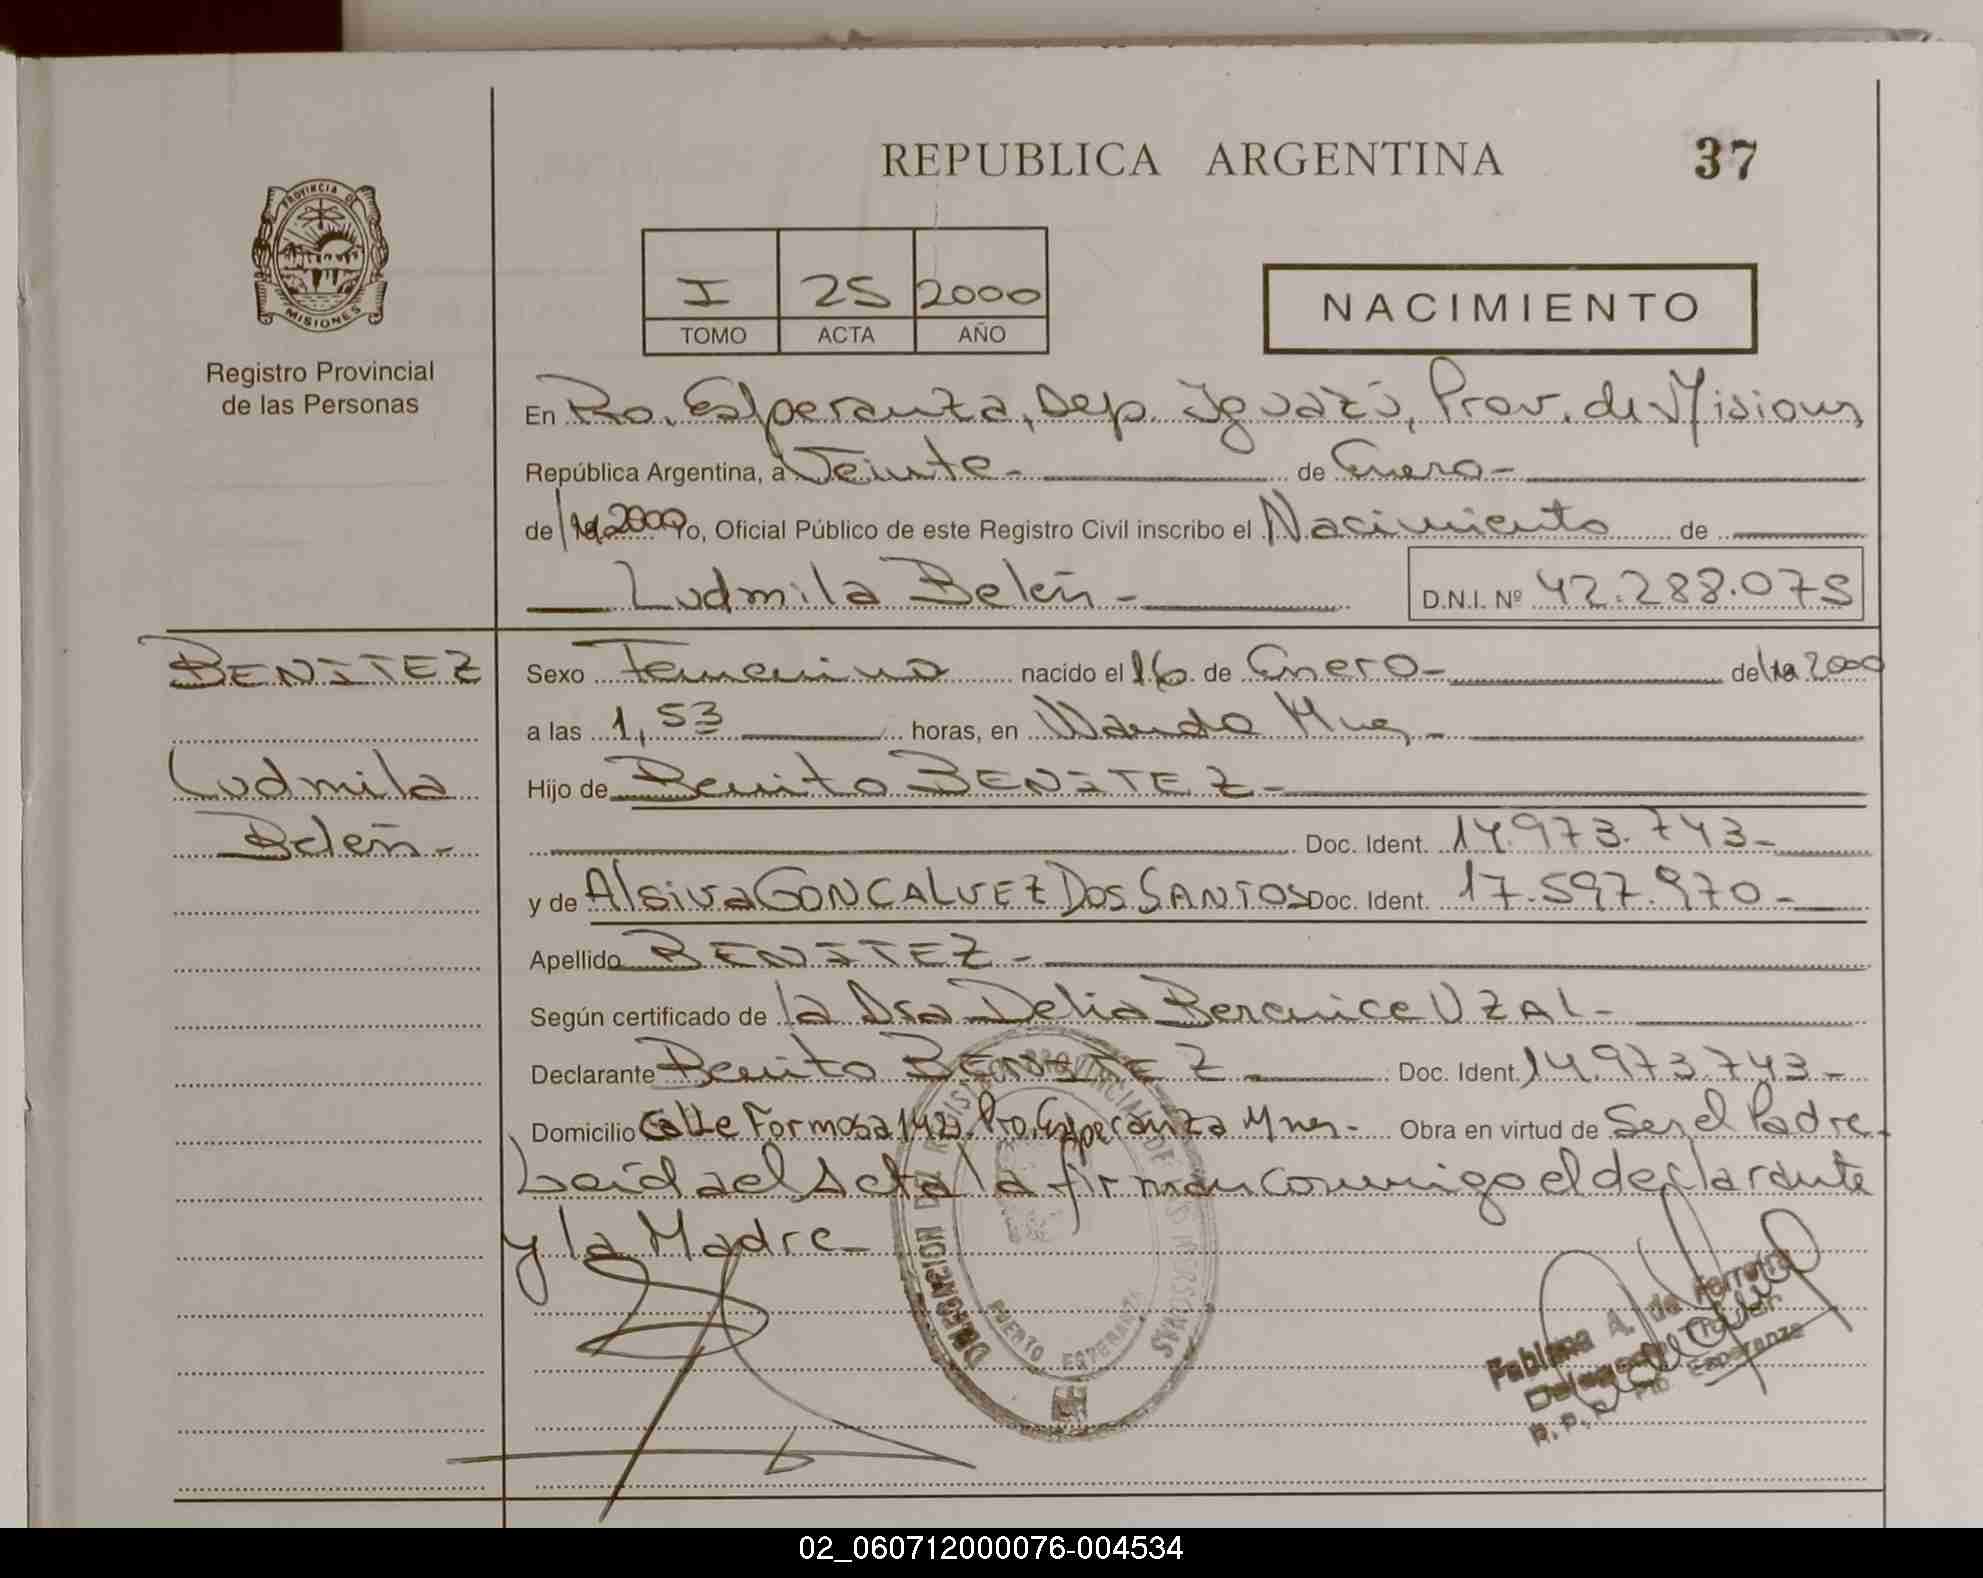 REPUBLICA ARGENTINA
37
PROVINCIA DE
MISIONES
Registro Provincial
de las Personas
I 25 2000
TOMO ACTA AÑO
NACIMIENTO
En Pto. Esperanza, Dep. Iguazú, Prov. de Misiones
República Argentina, a Veinte- de Enero-
de 19 2000 Yo, Oficial Público de este Registro Civil inscribo el Nacimiento de
Ludmila Belén-
D.N.I. Nº 42.288.075
BENITEZ
Ludmila
Belén-
Sexo Femenino nacido el 16 de Enero- de 19 2000
a las 1,53 horas, en Wanda Mnes-
Hijo de Benito BENITEZ-
Doc. Ident. 14.973.743-
y de Alsiva GONCALVEZ DOS SANTOS Doc. Ident. 17.597.970-
Apellido BENITEZ-
Según certificado de la Dra Delia Berenice UZAL-
Declarante Benito BENITEZ Doc. Ident. 14.973.743-
Domicilio Calle Formosa Pto. Esperanza Mnes- Obra en virtud de Ser el Padre-
Leída el Acta la firman conmigo el declarante
y la Madre-
PUERTO ESPERANZA
Fabiana A. de Ferreira
Delegada Titular
R.P.P. Pto. Esperanza
02_060712000076-004534